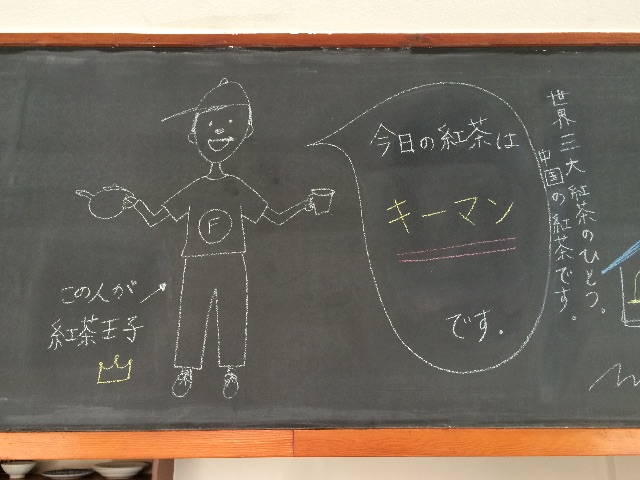 今日の紅茶は
キーマン
です。
世界三大紅茶のひとつ。
中国の紅茶です。
F
この人が
紅茶王子